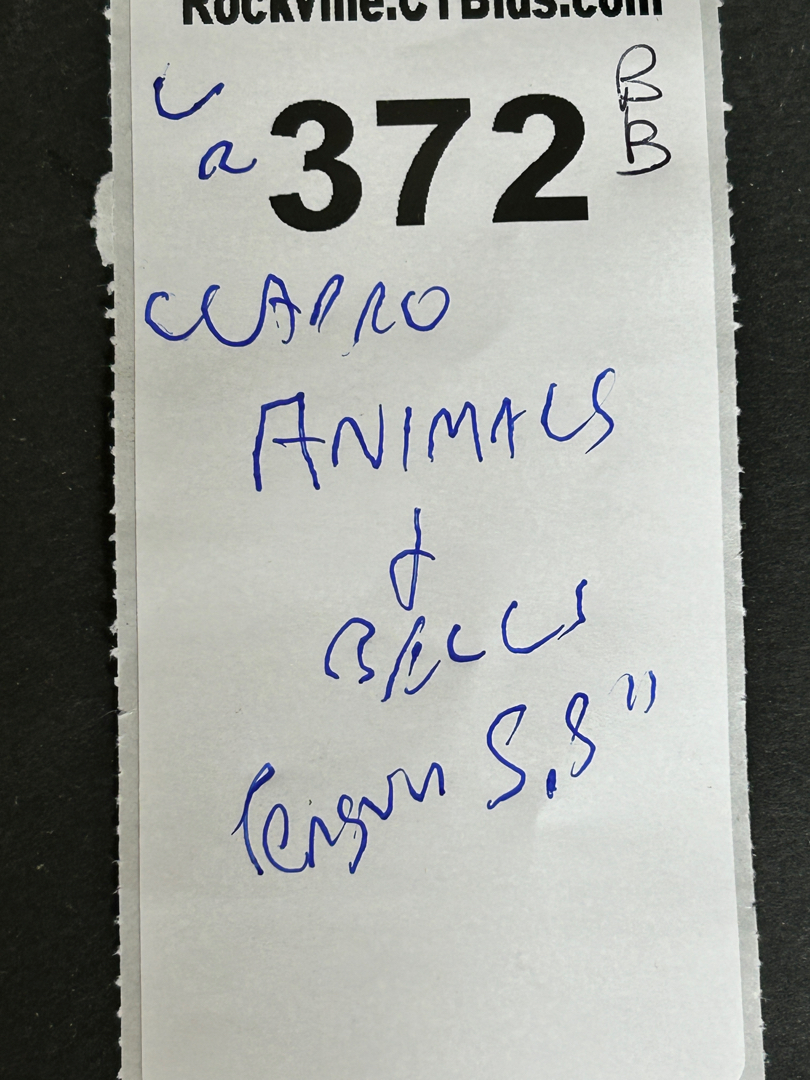 Rockville.CTBids.com
372
BB
LLADRO
ANIMALS
&
BELLS
Penguin 5.5"